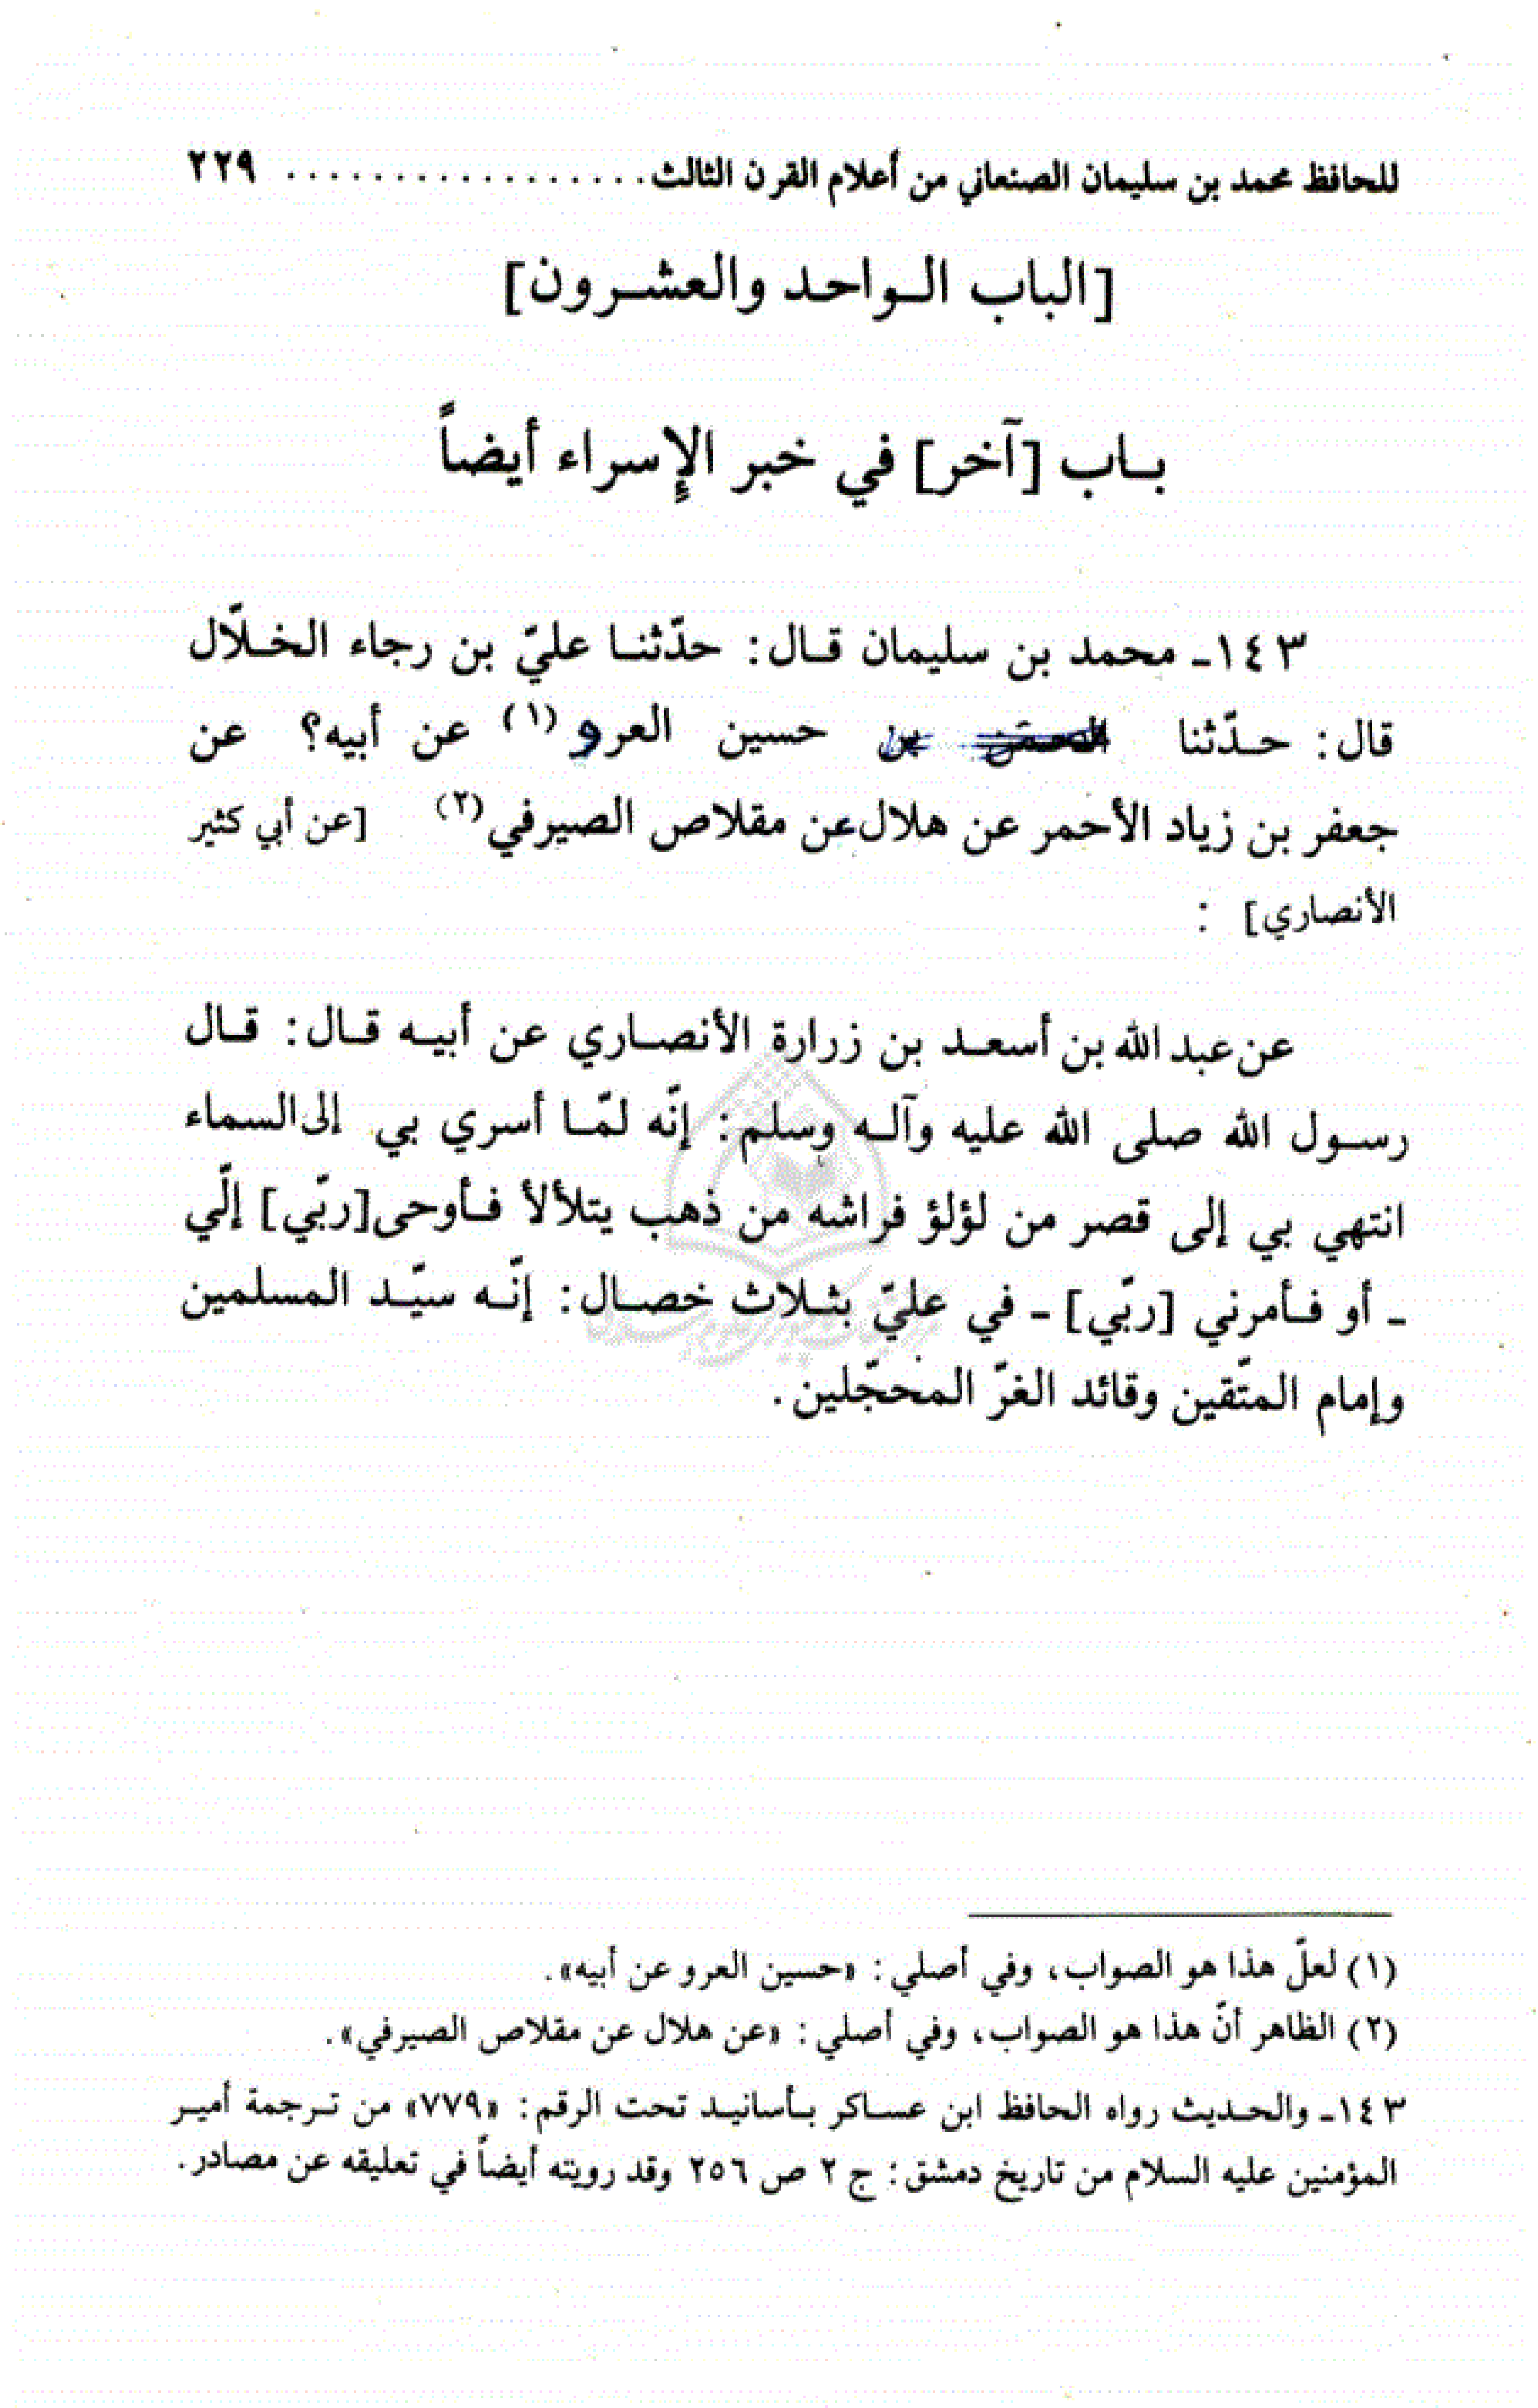 للحافظ محمد بن سليمان الصنعاني من أعلام القرن الثالث.................. ٢٢٩
[الباب الـواحـد والعشـرون]
بـاب [آخر] في خبر الإسراء أيضاً
١٤٣ـ محمد بن سليمان قـال: حدّثنـا عليّ بن رجاء الخـلّال
قال: حـدّثنا حسين العرو (١) عن أبيه؟ عن
جعفر بن زياد الأحمر عن هلال عن مقلاص الصيرفي (٢) [عن أبي كثير
الأنصاري] :
عن عبد الله بن أسعـد بن زرارة الأنصـاري عن أبيـه قـال: قـال
رسـول الله صلى الله عليه وآلـه وسلم: إنّه لمّـا أسري بي إلى السماء
انتهي بي إلى قصر من لؤلؤ فراشه من ذهب يتلألأ فـأوحى [ربّي] إلّي
ـ أو فـأمرني [ربّي] ـ في عليّ بثـلاث خصـال: إنّـه سيّـد المسلمين
وإمام المتّقين وقائد الغرّ المحجّلين.
(١) لعلّ هذا هو الصواب، وفي أصلي: «حسين العرو عن أبيه».
(٢) الظاهر أنّ هذا هو الصواب، وفي أصلي: «عن هلال عن مقلاص الصيرفي».
١٤٣ـ والحـديث رواه الحافظ ابن عسـاكر بـأسانيـد تحت الرقم: «٧٧٩» من تـرجمة أميـر
المؤمنين عليه السلام من تاريخ دمشق: ج ٢ ص ٢٥٦ وقد رويته أيضاً في تعليقه عن مصادر.